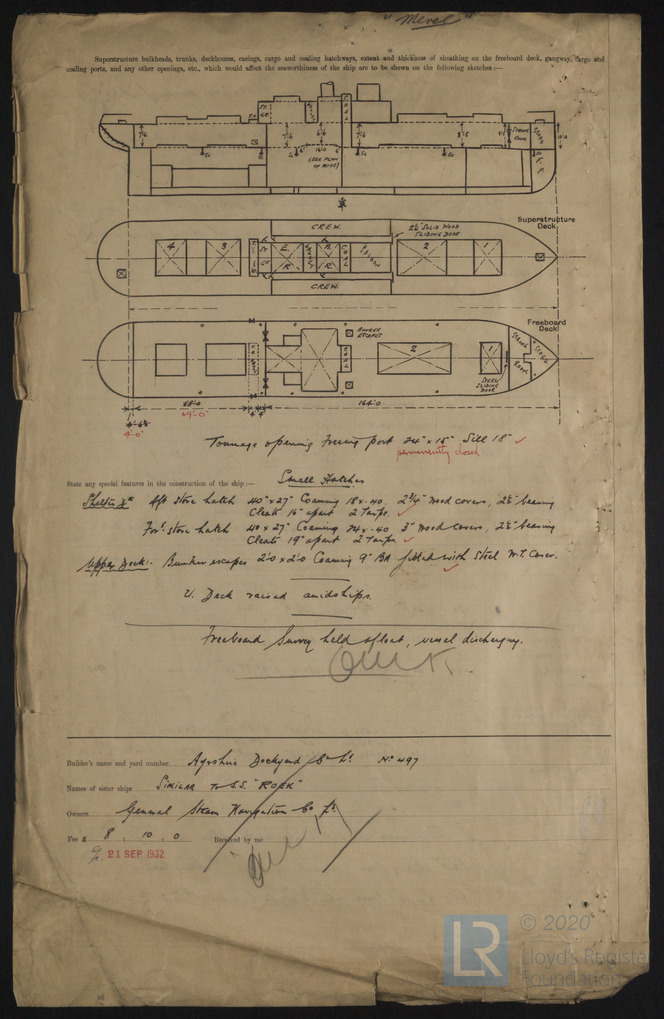 "Merel"
Superstructure bulkheads, trunks, deckhouses, casings, cargo and coaling hatchways, extent and thickness of sheathing on the freeboard deck, gangway, cargo and
coaling ports, and any other openings, etc., which would affect the seaworthiness of the ship are to be shewn on the following sketches :—
7'6
6'6
7'6
STORE
ROOM
16'0
(SEE PLAN
OF ROEK)
Superstructure
Deck
CREW
2½" SOLID WOOD
SLIDING DOOR
4
3
E
R
B
R
2
1
CREW
Freeboard
Deck
BUNKER
ESCAPES
2
1
Store
Room
STEEL
SLIDING
DOOR
164'-0
4'-0"
Tonnage opening Freeing port 24" x 15" Sill 18" ✓
permanently closed
State any special features in the construction of the ship :—
Small Hatches
Shelter Dk Aft store hatch 40" x 27" Coaming 18 x .40, 2¾" wood covers, 2½" bearing
Cleats 16" apart 2 Tarps. ✓
For'd store hatch 40 x 27" Coaming 24 x .40 3" wood covers, 2½" bearing
Cleats 19" apart 2 Tarps ✓
Upper Deck:- Bunker escapes 2'0 x 2'0 Coaming 9" BA fitted with Steel W.T. Cover.
U. Deck raised amidships.
Freeboard Survey held afloat, vessel discharging.
Builder's name and yard number Ayrshire Dockyard Co Ld No 497
Names of sister ships SIMILAR To S.S. "ROEK"
Owners General Steam Navigation Co Ld.
Fee £ 8 : 10 : 0 Received by me
21 SEP 1932
LR
© 2020
Lloyd's Register
Foundation